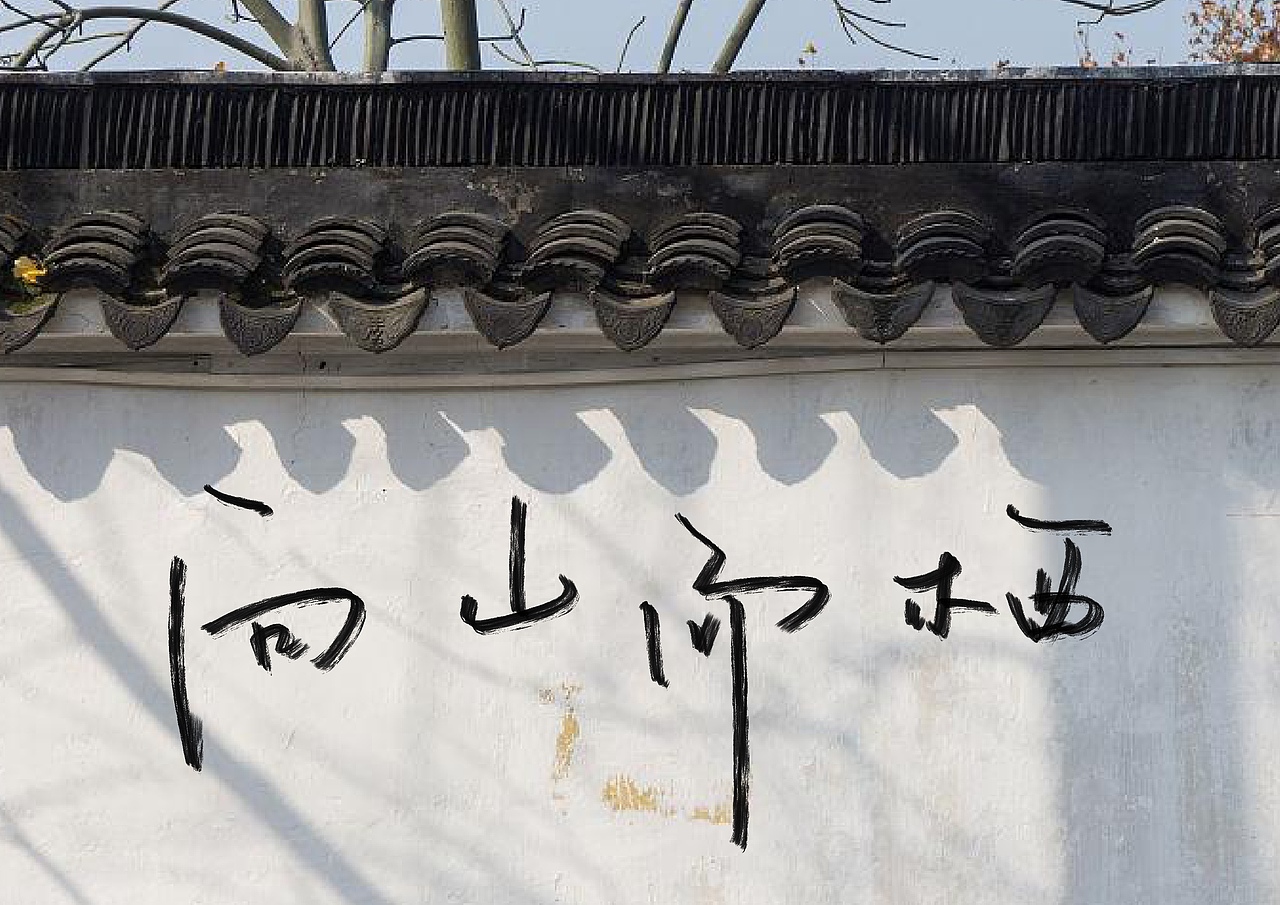 向山而栖